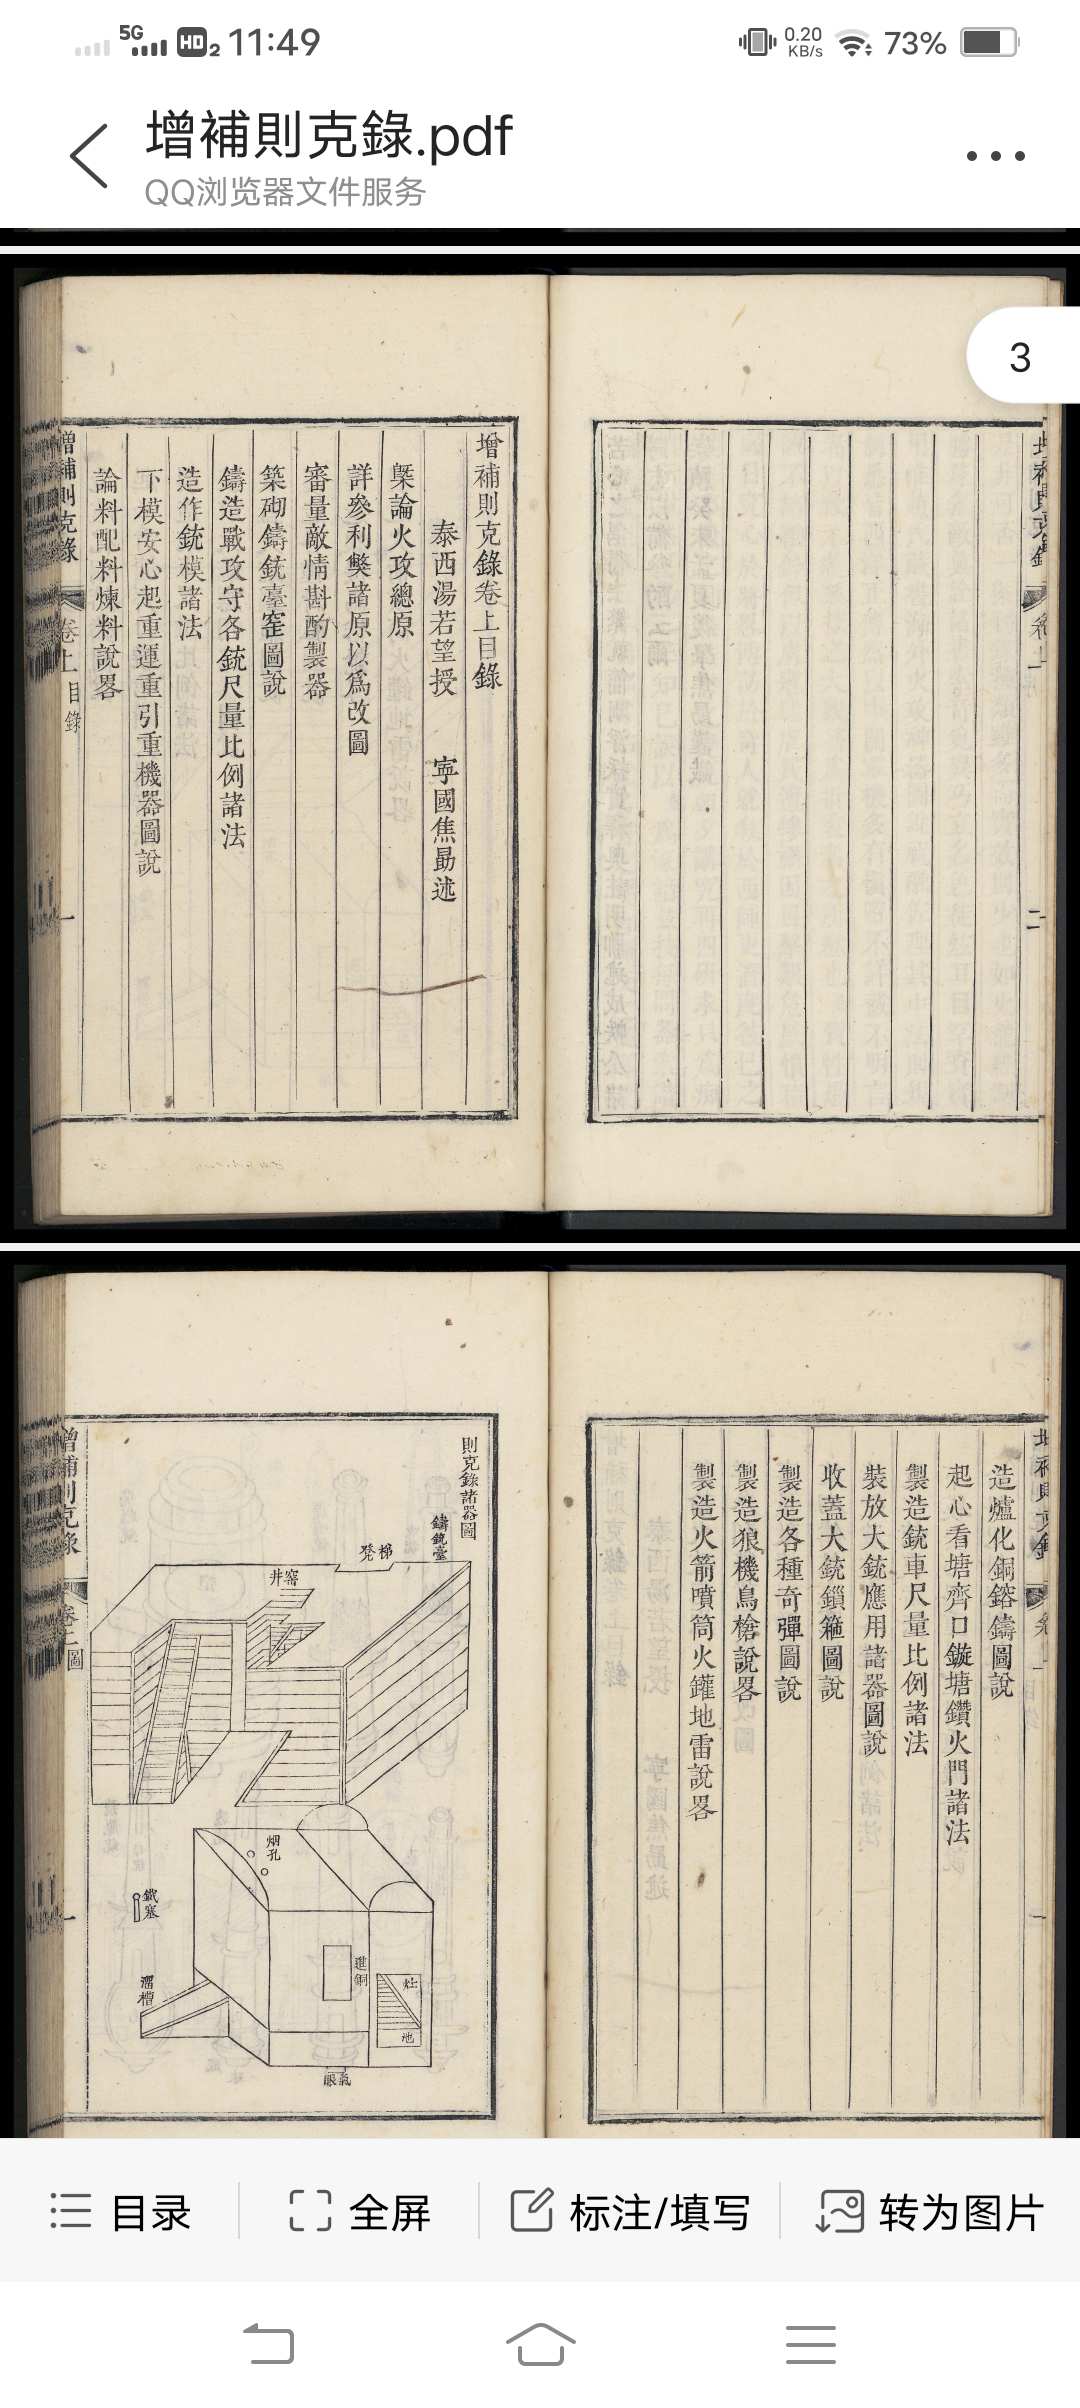 5G
HD 2
11:49
0.20
KB/s
73%
增補則克錄.pdf
QQ浏览器文件服务
3
增補則克錄卷上目錄
泰西湯若望授 寕國焦勗述
槩論火攻總原
詳參利獘諸原以爲改圖
審量敵情斟酌製器
築砌鑄銃臺窰圖說
鑄造戰攻守各銃尺量比例諸法
造作銃模諸法
下模安心起重運重引重機器圖說
論料配料煉料說畧
增補則克錄 卷上 目錄 一
二
造爐化銅鎔鑄圖說
起心看塘齊口鏇塘鑽火門諸法
製造銃車尺量比例諸法
裝放大銃應用諸器圖說
收蓋大銃鎖箍圖說
製造各種奇彈圖說
製造狼機鳥槍說畧
製造火箭噴筒火鑵地雷說畧
則克錄諸器圖
鑄銃臺
梯凳
井窰
烟孔
鐵塞
進銅
溜槽
灶
池
眼氣
增補則克錄
圖
一
目录
全屏
标注/填写
转为图片